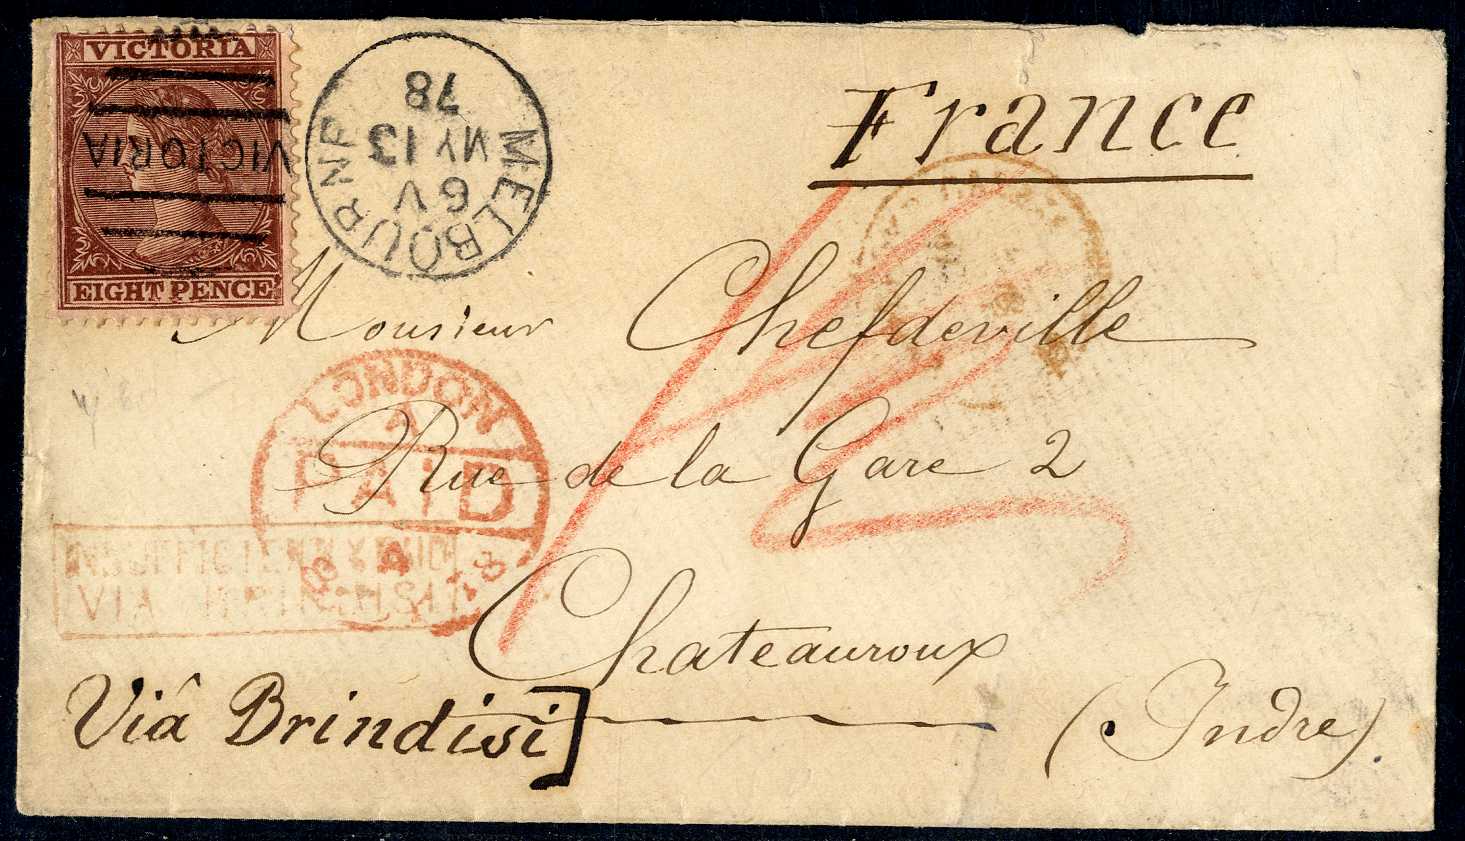 VICTORIA
VICTORIA
EIGHT PENCE
MELBOURNE
6 V
MY 13
78
France
Monsieur Chefdeville
LONDON
PAID
Rue de la Gare 2
INSUFFICIENTLY PAID
VIA BRINDISI
Chateauroux
(Indre).
Viâ Brindisi]